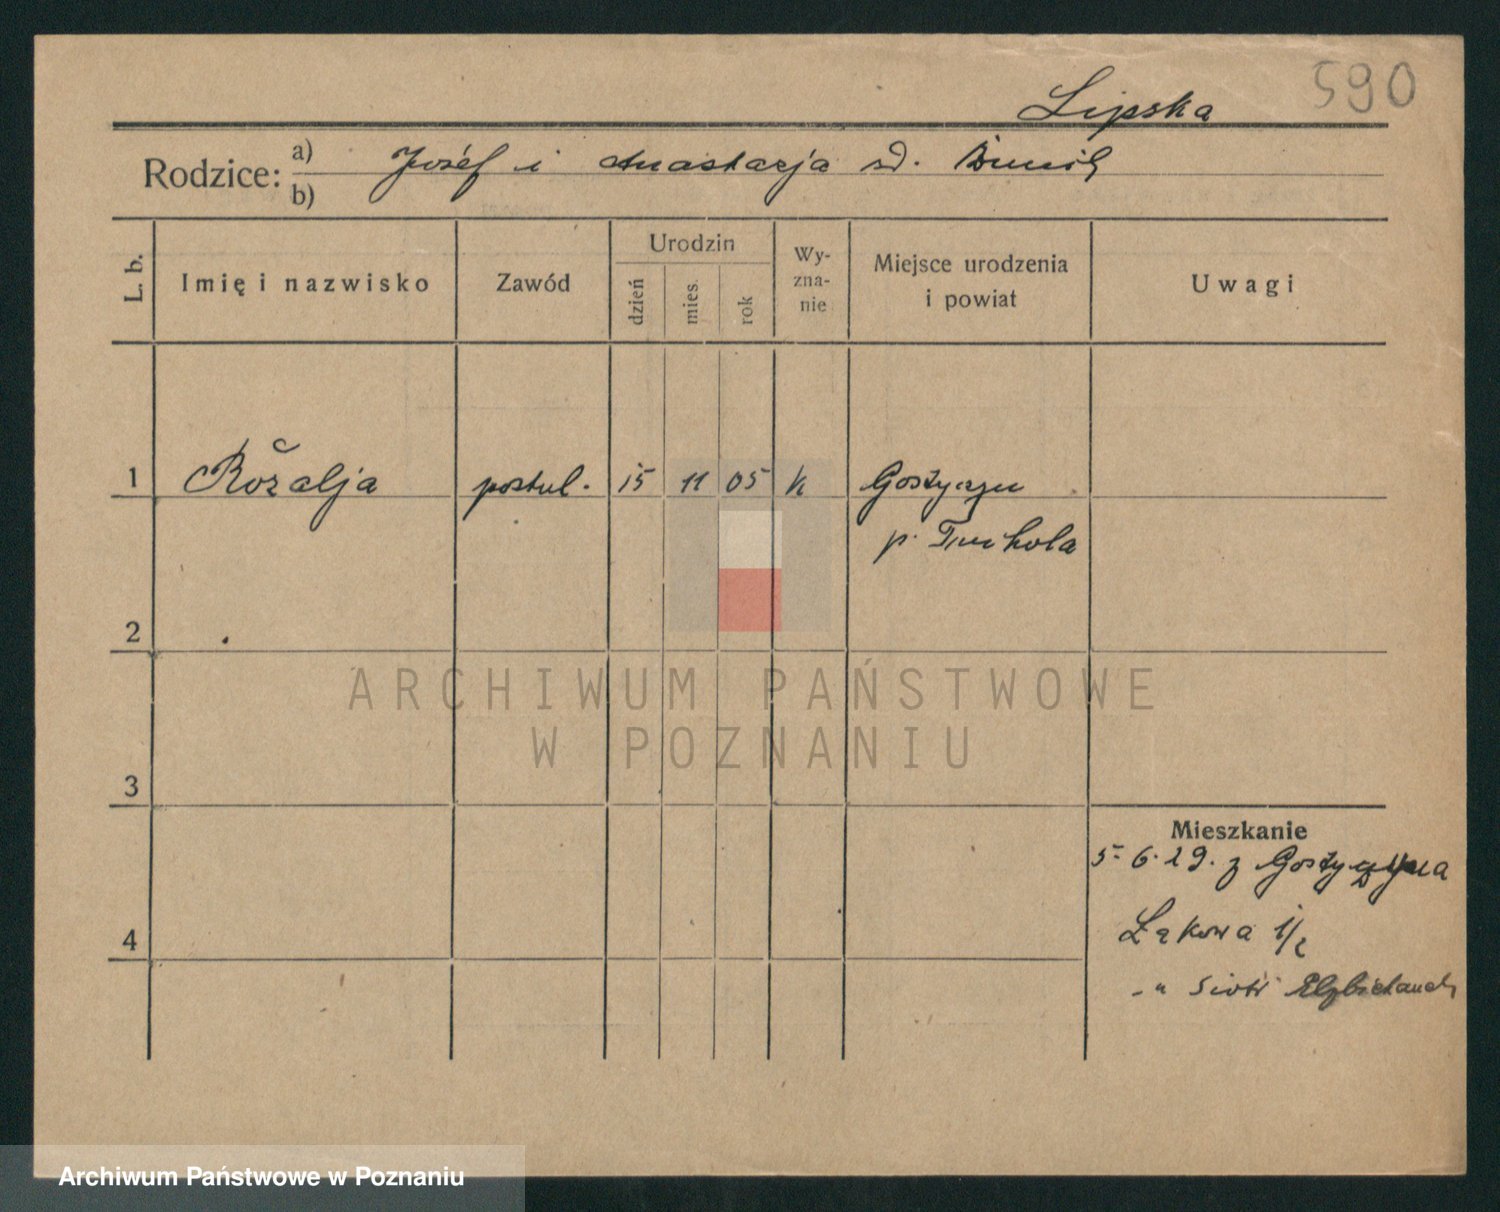 590
Lipska
Rodzice: a) Józef i Anastazja zd.
b)
L. b.
Imię i nazwisko
Zawód
Urodzin
dzień
mies.
rok
Wy-
zna-
nie
Miejsce urodzenia
i powiat
Uwagi
1 Rožalja postul. 15 11 05 k Gostyczyn
p. Tuchola
2
3
4
Mieszkanie
5.6.29. z Gostyczyna
Łąkowa 1/2
-" Siotr Elżbietanek
ARCHIWUM PAŃSTWOWE
W POZNANIU
Archiwum Państwowe w Poznaniu